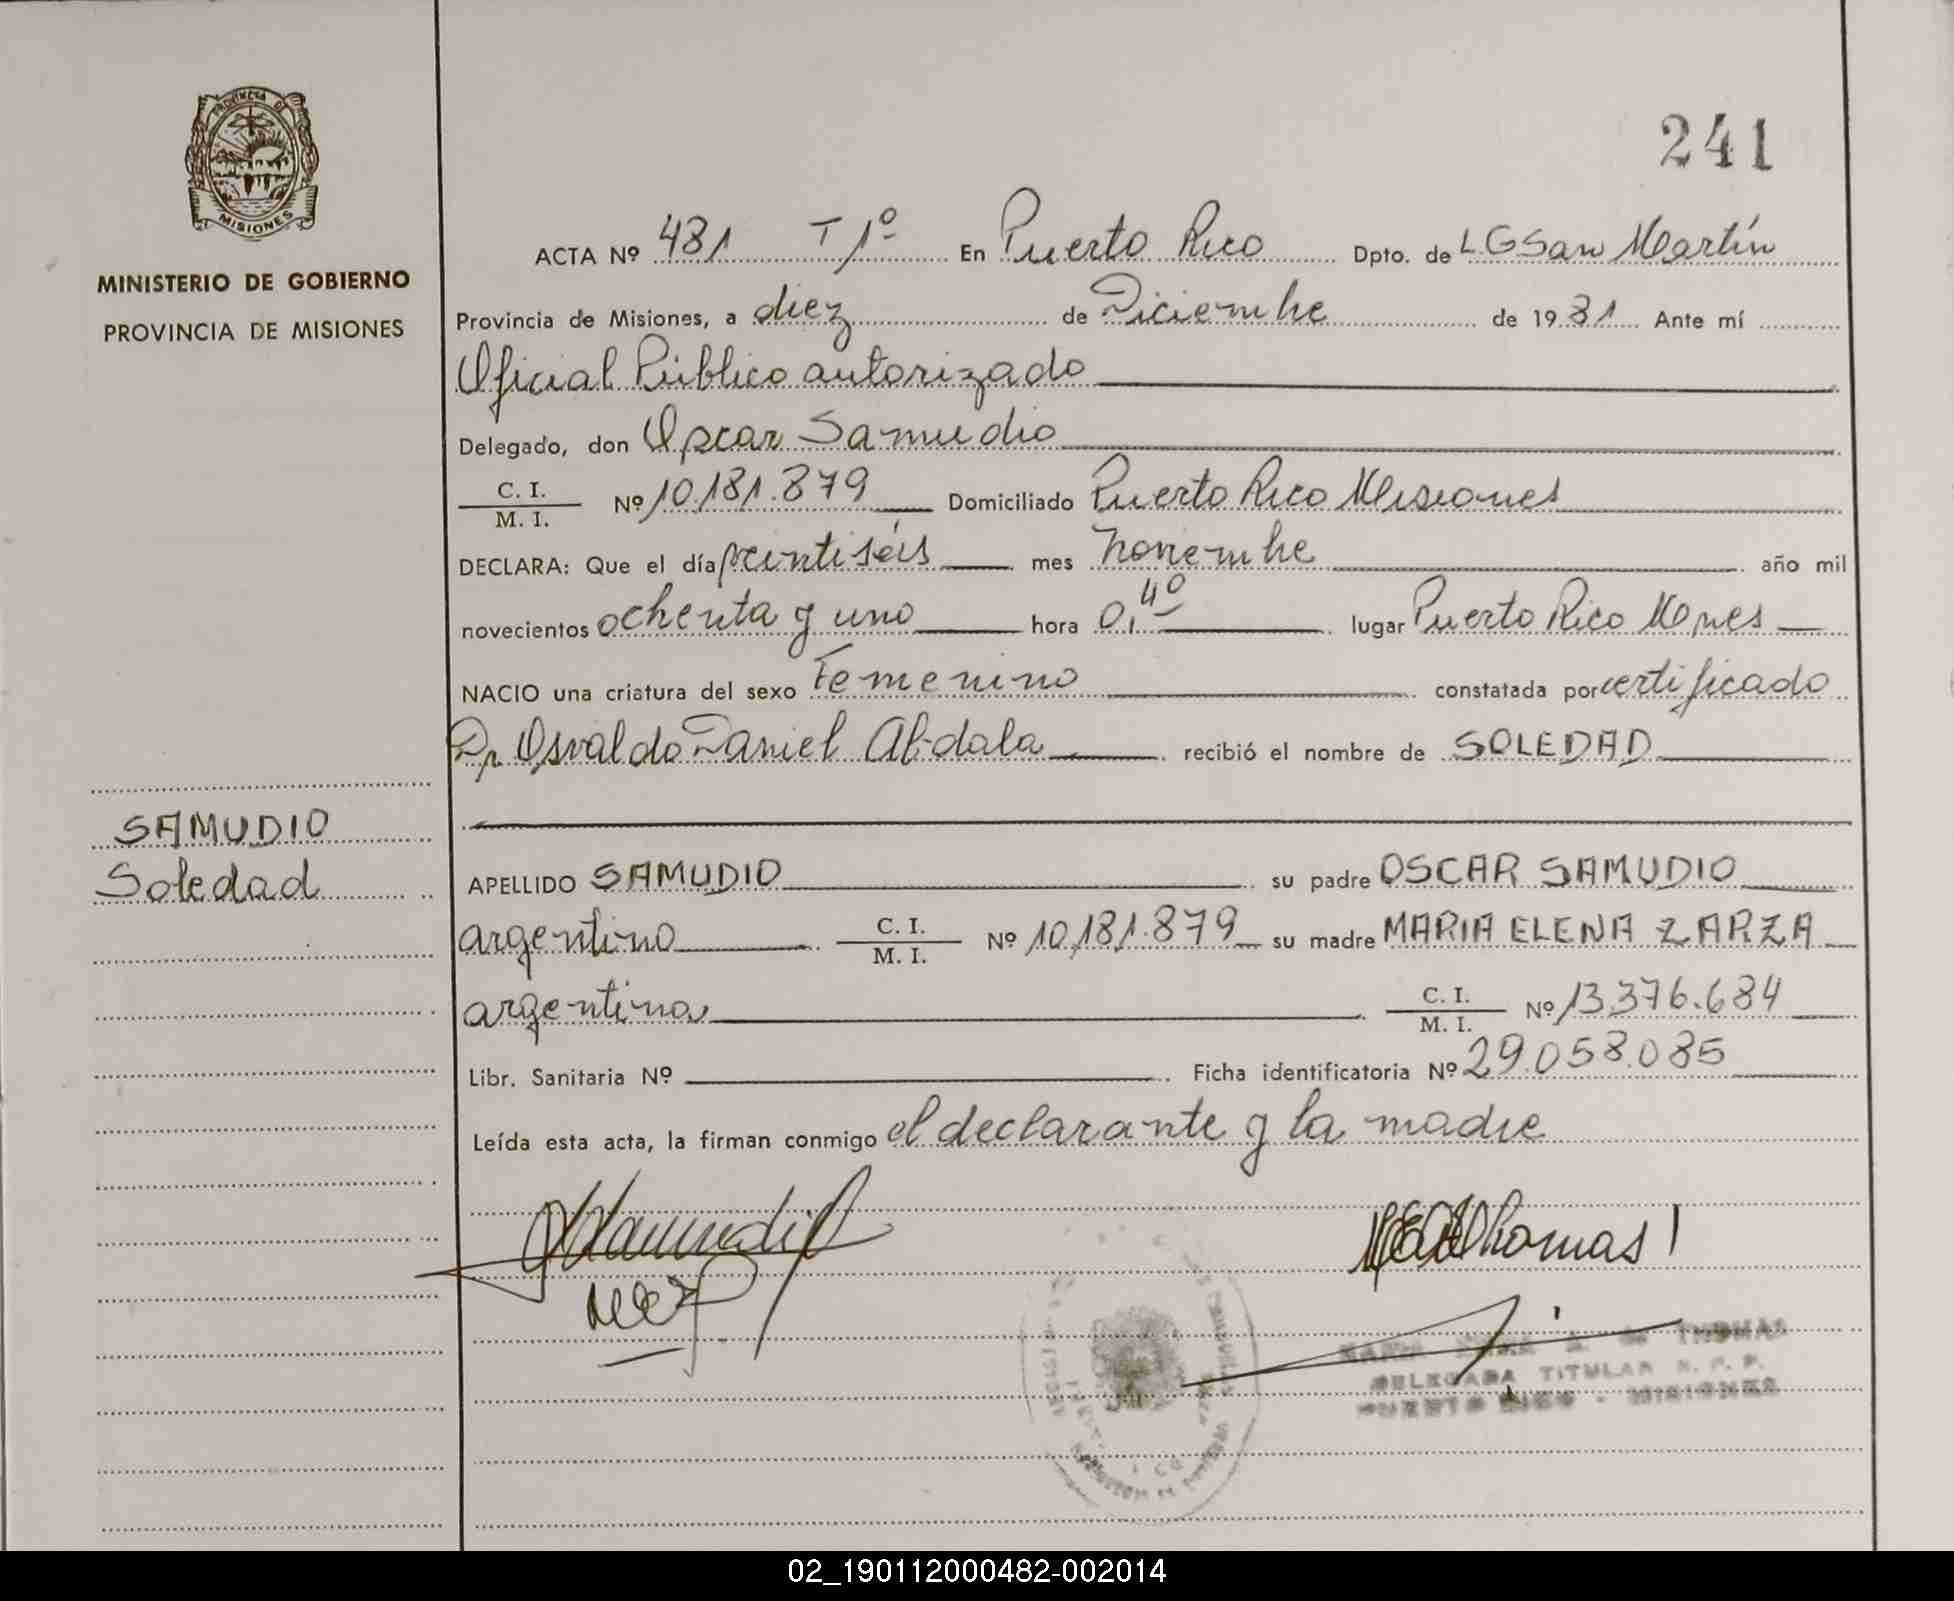 PROVINCIA DE
MISIONES
MINISTERIO DE GOBIERNO
PROVINCIA DE MISIONES
SAMUDIO
Soledad
241
ACTA Nº 481 T 1º En Puerto Rico Dpto. de L G San Martín
Provincia de Misiones, a diez de Diciembre de 1981 Ante mí
Oficial Público autorizado
Delegado, don Oscar Samudio
C. I. / M. I. Nº 10.181.879 Domiciliado Puerto Rico Misiones
DECLARA: Que el día veintiséis mes noviembre año mil
novecientos ochenta y uno hora 0,40 lugar Puerto Rico Mones
NACIO una criatura del sexo Femenino constatada por certificado
Dr Osvaldo Daniel Abdala recibió el nombre de SOLEDAD
APELLIDO SAMUDIO su padre OSCAR SAMUDIO
argentino C. I. / M. I. Nº 10.181.879 su madre MARIA ELENA ZARZA
argentina C. I. / M. I. Nº 13.376.684
Libr. Sanitaria Nº Ficha identificatoria Nº 29.058.085
Leída esta acta, la firman conmigo el declarante y la madre
Thomas
DE THOMAS
DELEGADA TITULAR R. P. P.
PUERTO RICO - MISIONES
02_190112000482-002014